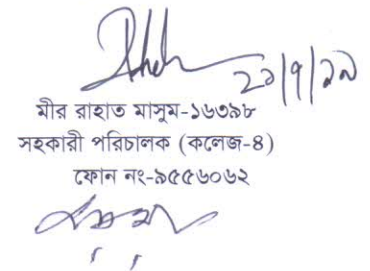 ২১/৭/১৯
মীর রাহাত মাসুম-১৬৩৯৮
সহকারী পরিচালক (কলেজ-৪)
ফোন নং-৯৫৫৬০৬২